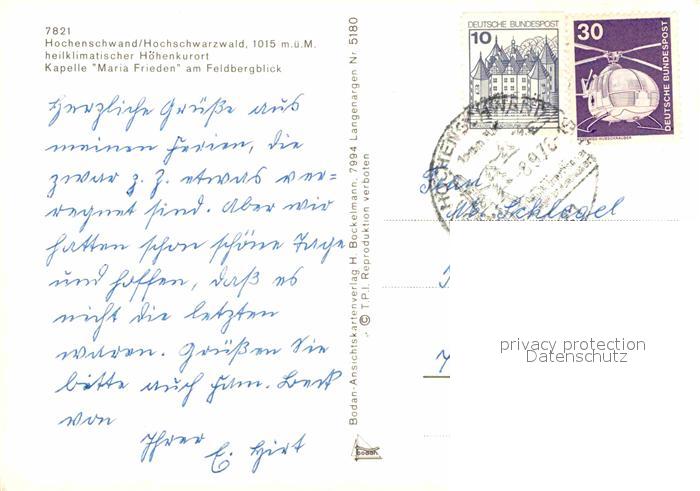 7821
Hochenschwand/Hochschwarzwald, 1015 m.ü.M.
heilklimatischer Höhenkurort
Kapelle "Maria Frieden" am Feldbergblick
Herzliche Grüße aus
meinen Ferien, die
zwar z. Z. etwas ver=
regnet sind. Aber wir
hatten schon schöne Tage
und hoffen, daß es
nicht die letzten
waren. Grüßen Sie
bitte auch Fam. Beck
von
Ihrer
E. Hirt
Bodan-Ansichtskartenverlag H. Bockelmann, 7994 Langenargen Nr. 5180
© T.P.I. Reproduktion verboten
bodan
DEUTSCHE BUNDESPOST
10
30
DEUTSCHE BUNDESPOST
HÖCHENSCHWAND
Frau
Schlagel
privacy protection
Datenschutz